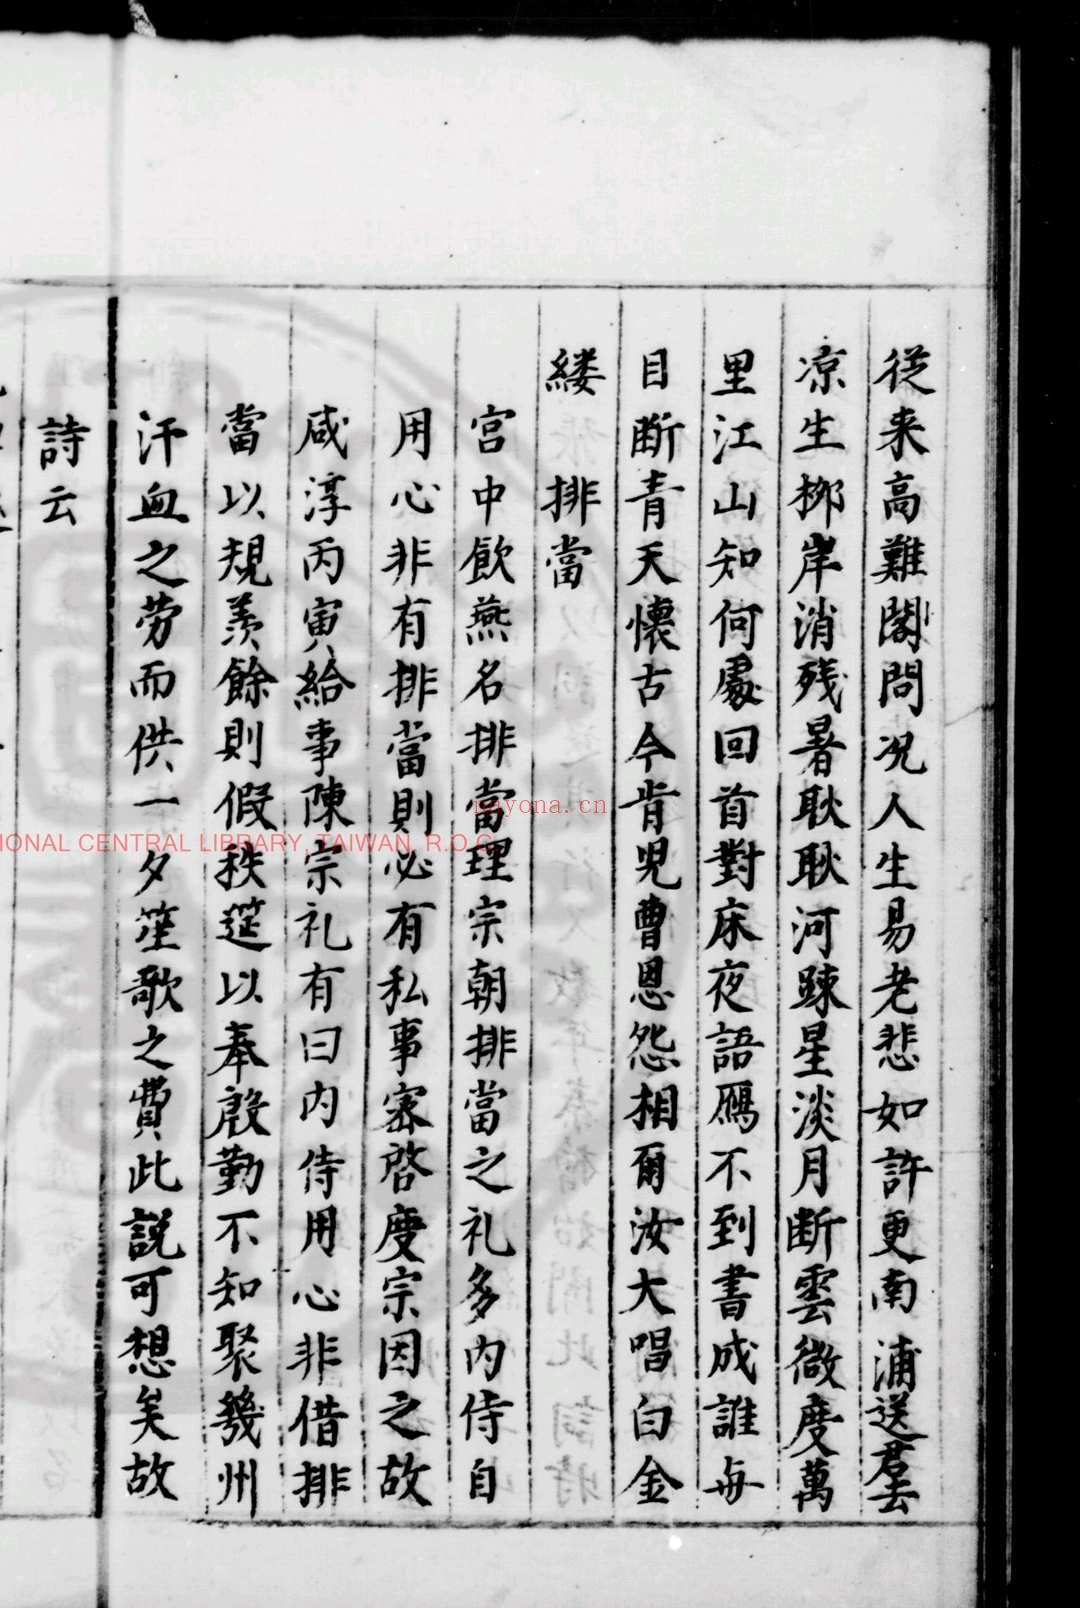 従来高難閣問况人生易老悲如許更南浦送君去
凉生栁岸消残暑耿耿河踈星淡月断雲微度萬
里江山知何處回首對床夜語鴈不到書成誰與
目断青天懷古今肯児曹恩怨相爾汝大唱白金
縷　排當
宮中飲燕名排當理宗朝排當之礼多内侍自
用心非有排當則必有私事宻啓度宗因之故
咸淳丙寅給事陳宗礼有曰内侍用心非借排
當以規羡餘則假秩筵以奉慇勤不知聚幾州
汗血之劳而供一夕笙歌之費此說可想矣故
詩云
NATIONAL CENTRAL LIBRARY, TAIWAN, R.O.C.